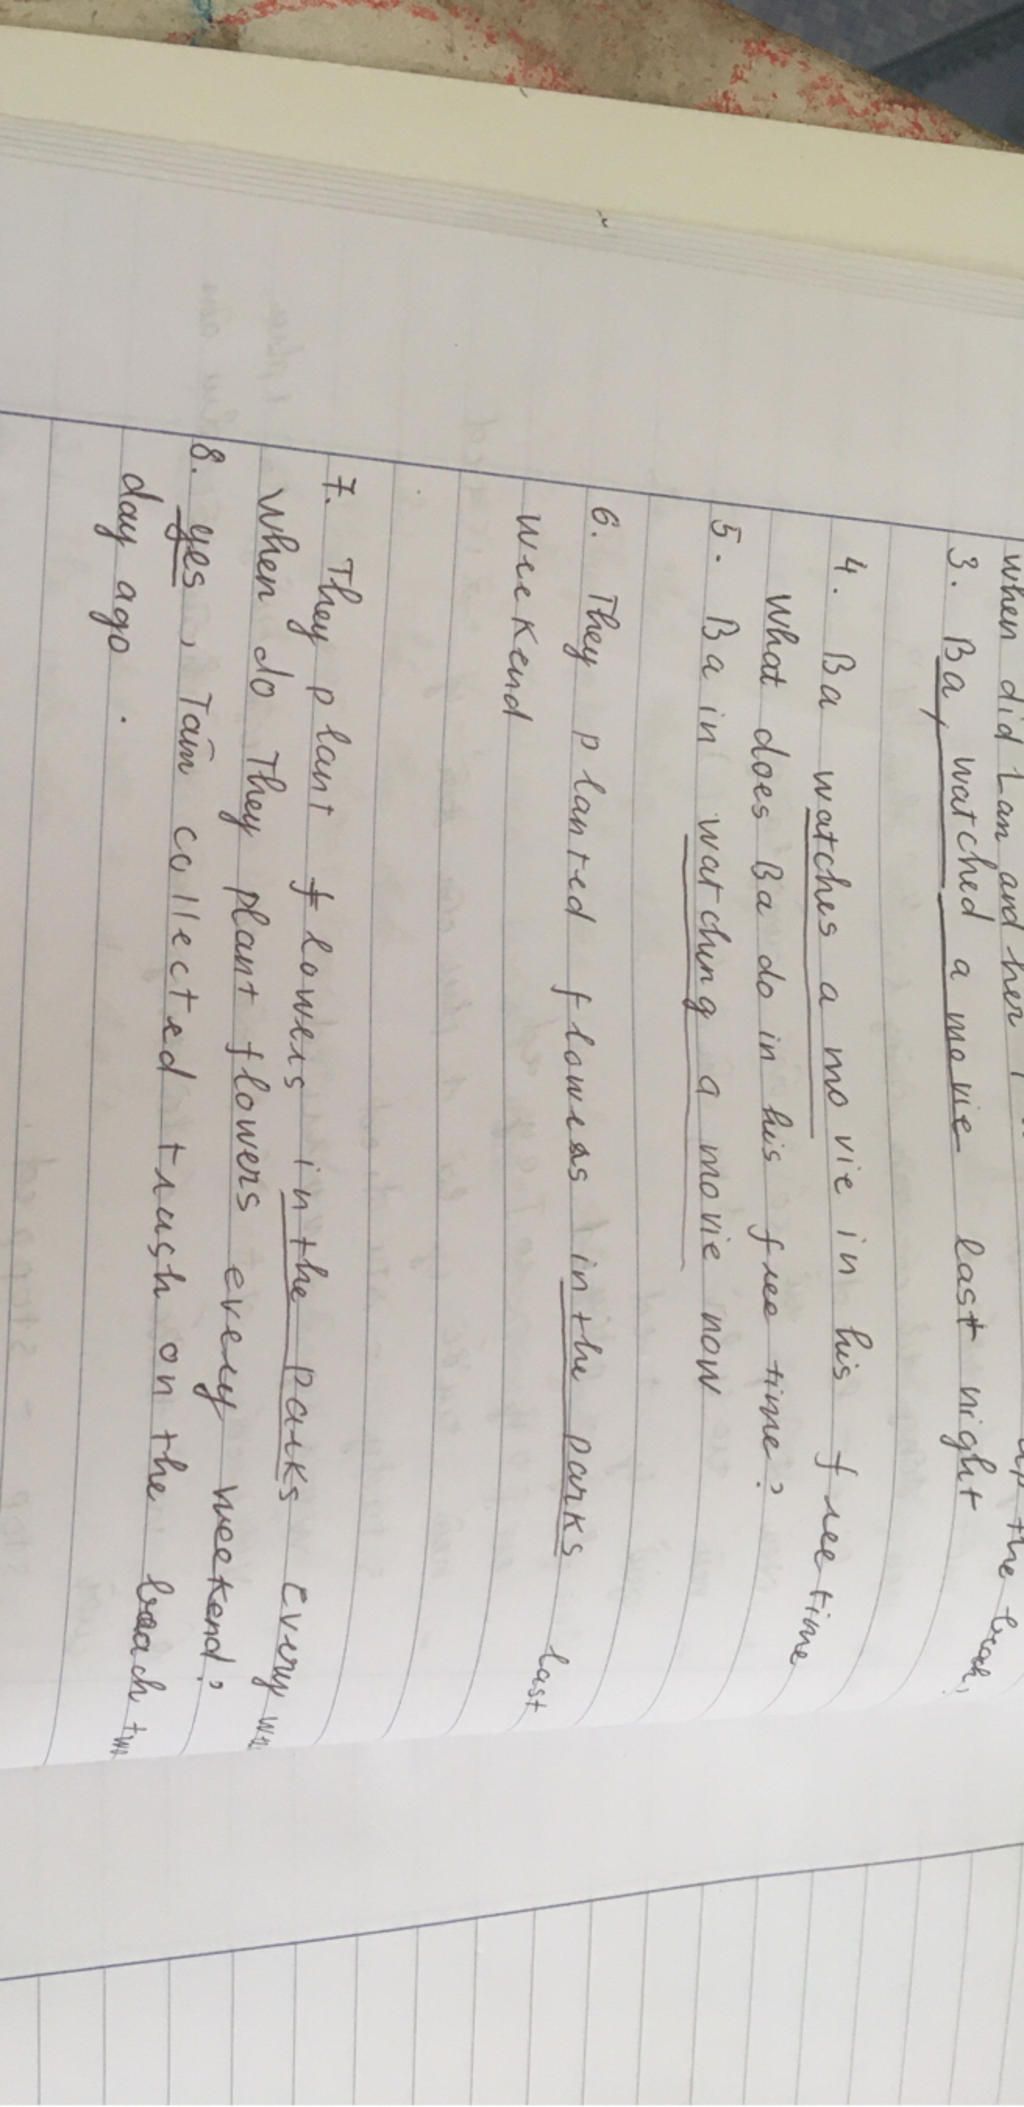 when did Lan and her
up the books
3. Ba, watched a movie last night
4. Ba watches a movie in his free time
what does Ba do in his free time?
5. Ba in watching a movie now
6. They planted flowers in the parks last
weekend
7. They plant flowers in the parks every
when do They plant flowers every weekend?
8. yes, Tâm collected trush on the beach
day ago.